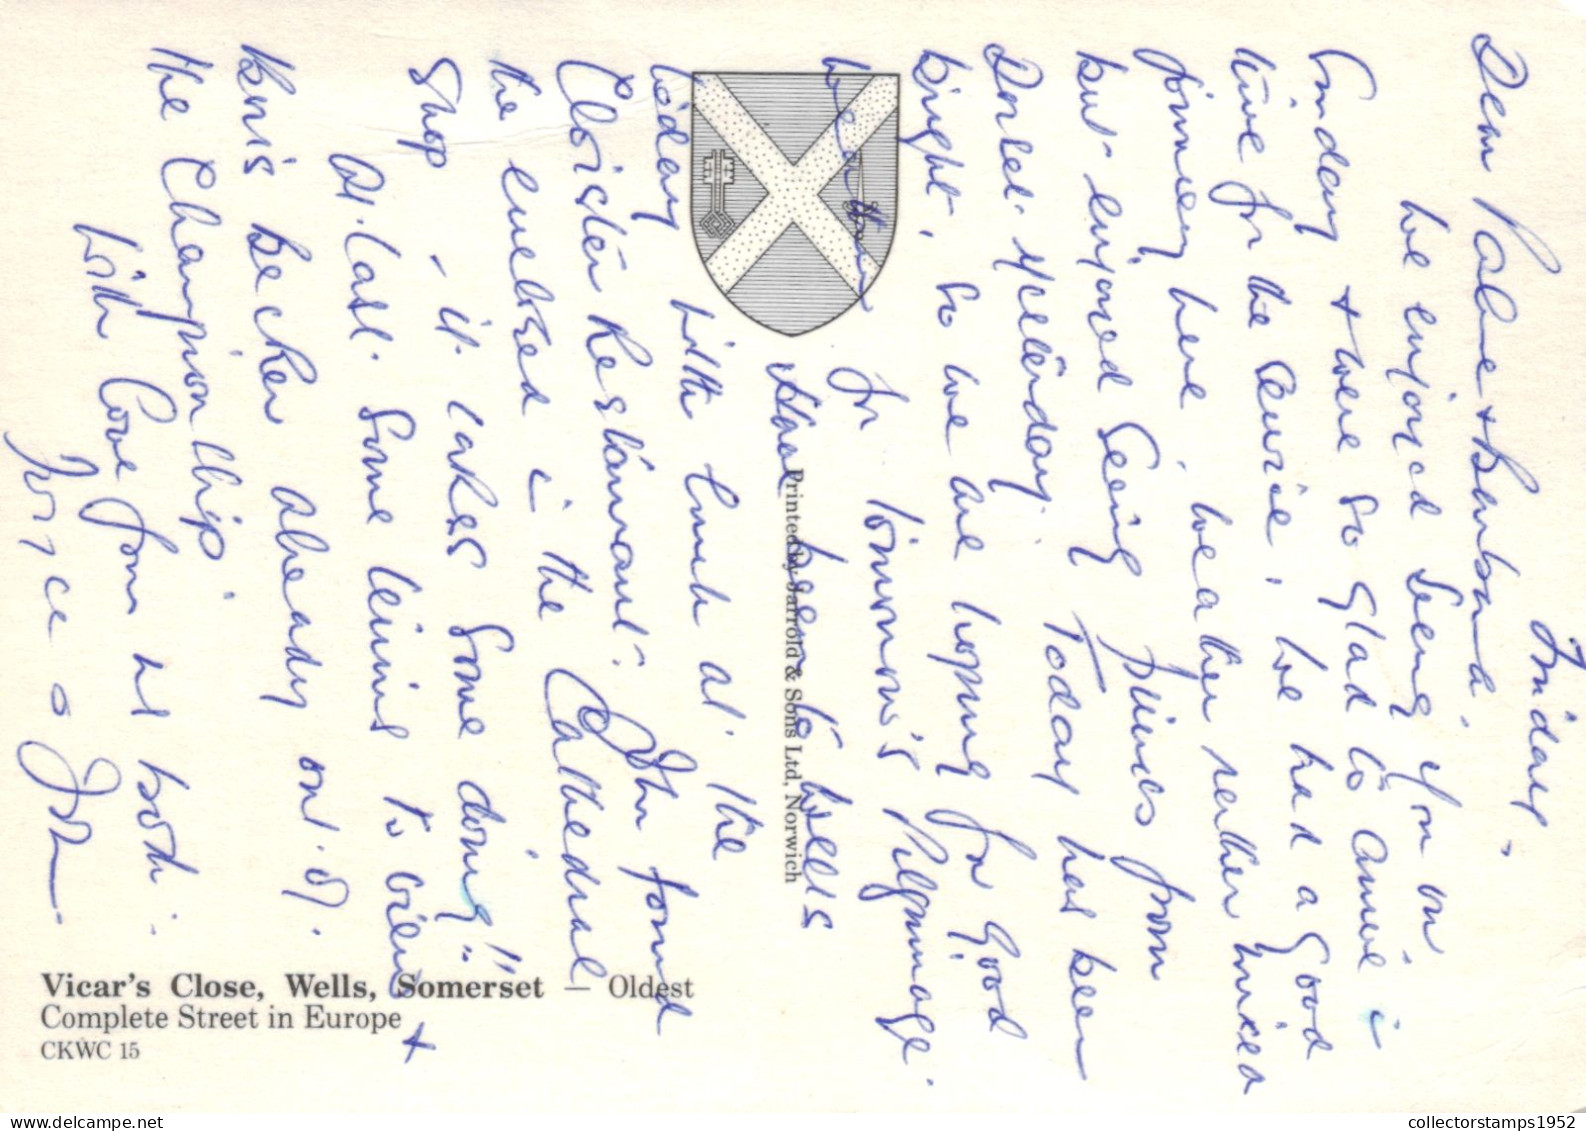 Friday.
Dear Pabre & Barbara.
We enjoyed seeing you on
Sunday & were so glad to arrive in
time for the service. We had a good
journey here, weather rather mixed
but enjoyed seeing friends from
Dorset yesterday. Today has been
bright. So we are hoping for good
weather for tomorrow's Pilgrimage.
Have been to Wells
today with lunch at the
Cloister Restaurant. John found
the enclosed in the Cathedral
Shop - it takes some doing!!
At last some tennis to view &
Boris Becker already out of
the Championship.
With love from us both.
Joyce & John.
Printed by Jarrold & Sons Ltd, Norwich
Vicar's Close, Wells, Somerset — Oldest
Complete Street in Europe
CKWC 15
collectorstamps1952